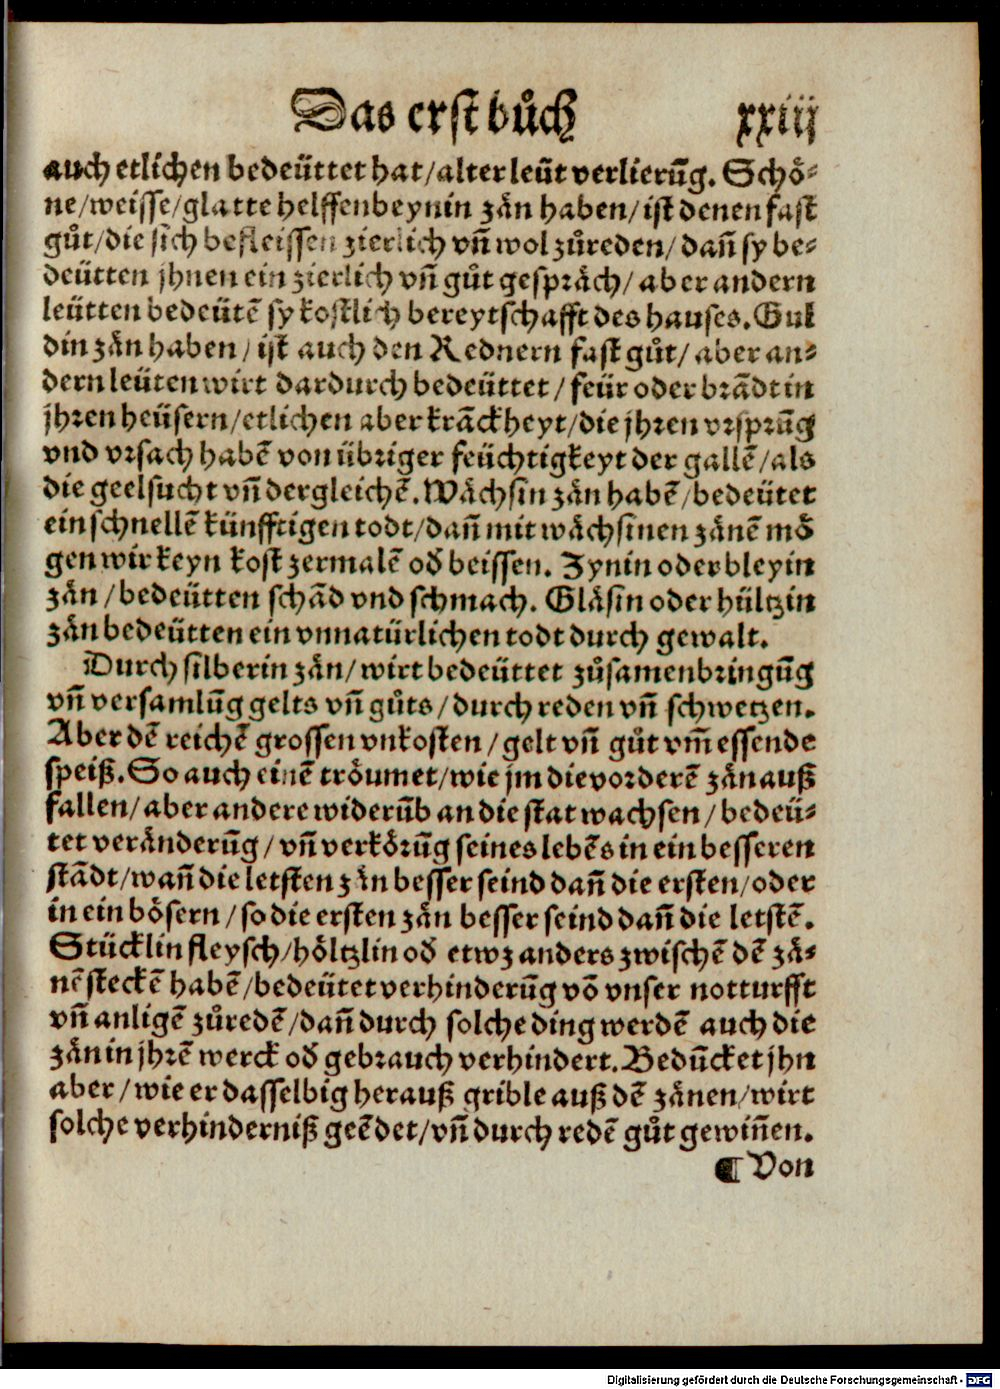 Das erst bůch xxiij
auch etlichen bedeüttet hat/alter leüt verlierūg. Schö⸗
ne/weisse/glatte helffenbeynin zän haben/ist denen fast
gůt/die sich befleissen zierlich vn̄ wol zůreden/dan̄ sy be⸗
deütten jhnen ein zierlich vn̄ gůt gespräch/aber andern
leütten bedeütē sy kostlich bereytschafft des hauses. Gul
din zän haben/ist auch den Rednern fast gůt/aber an⸗
dern leüten wirt dardurch bedeüttet/feür oder brādt in
jhren heüsern/etlichen aber krāckheyt/die jhren vrsprūg
vnd vrsach habē von übriger feüchtigkeyt der gallē/als
die geelsucht vn̄ dergleichē. Wächsin zän habē/bedeütet
ein schnellē künfftigen todt/dan̄ mit wächsinen zänē mö
gen wir keyn kost zermalē od̕ beissen. Zynin oder bleyin
zän/bedeütten schād vnd schmach. Gläsin oder hültzin
zän bedeütten ein vnnatürlichen todt durch gewalt.
Durch silberin zän/wirt bedeüttet zůsamenbringūg
vn̄ versamlūg gelts vn̄ gůts/durch reden vn̄ schwetzen.
Aber dē reichē grossen vnkosten/gelt vn̄ gůt vm̄ essende
speiß. So auch einē tröumet/wie jm die vorderē zän auß
fallen/aber andere widerūb an die stat wachsen/bedeü⸗
tet veränderūg/vn̄ verkörūg seines lebēs in ein besseren
stādt/wan̄ die letsten zän besser seind dan̄ die ersten/oder
in ein bösern/so die ersten zän besser seind dan̄ die letstē.
Stücklin fleysch/höltzlin od̕ etwz anders zwischē dē zä⸗
nē steckē habē/bedeütet verhinderūg vō vnser notturfft
vn̄ anligē zůredē/dan̄ durch solche ding werdē auch die
zän in jhrē werck od̕ gebrauch verhindert. Bedūcket jhn
aber/wie er dasselbig herauß grible auß dē zänen/wirt
solche verhinderniß geēdet/vn̄ durch redē gůt gewin̄en.
¶ Von
Digitalisierung gefördert durch die Deutsche Forschungsgemeinschaft - DFG